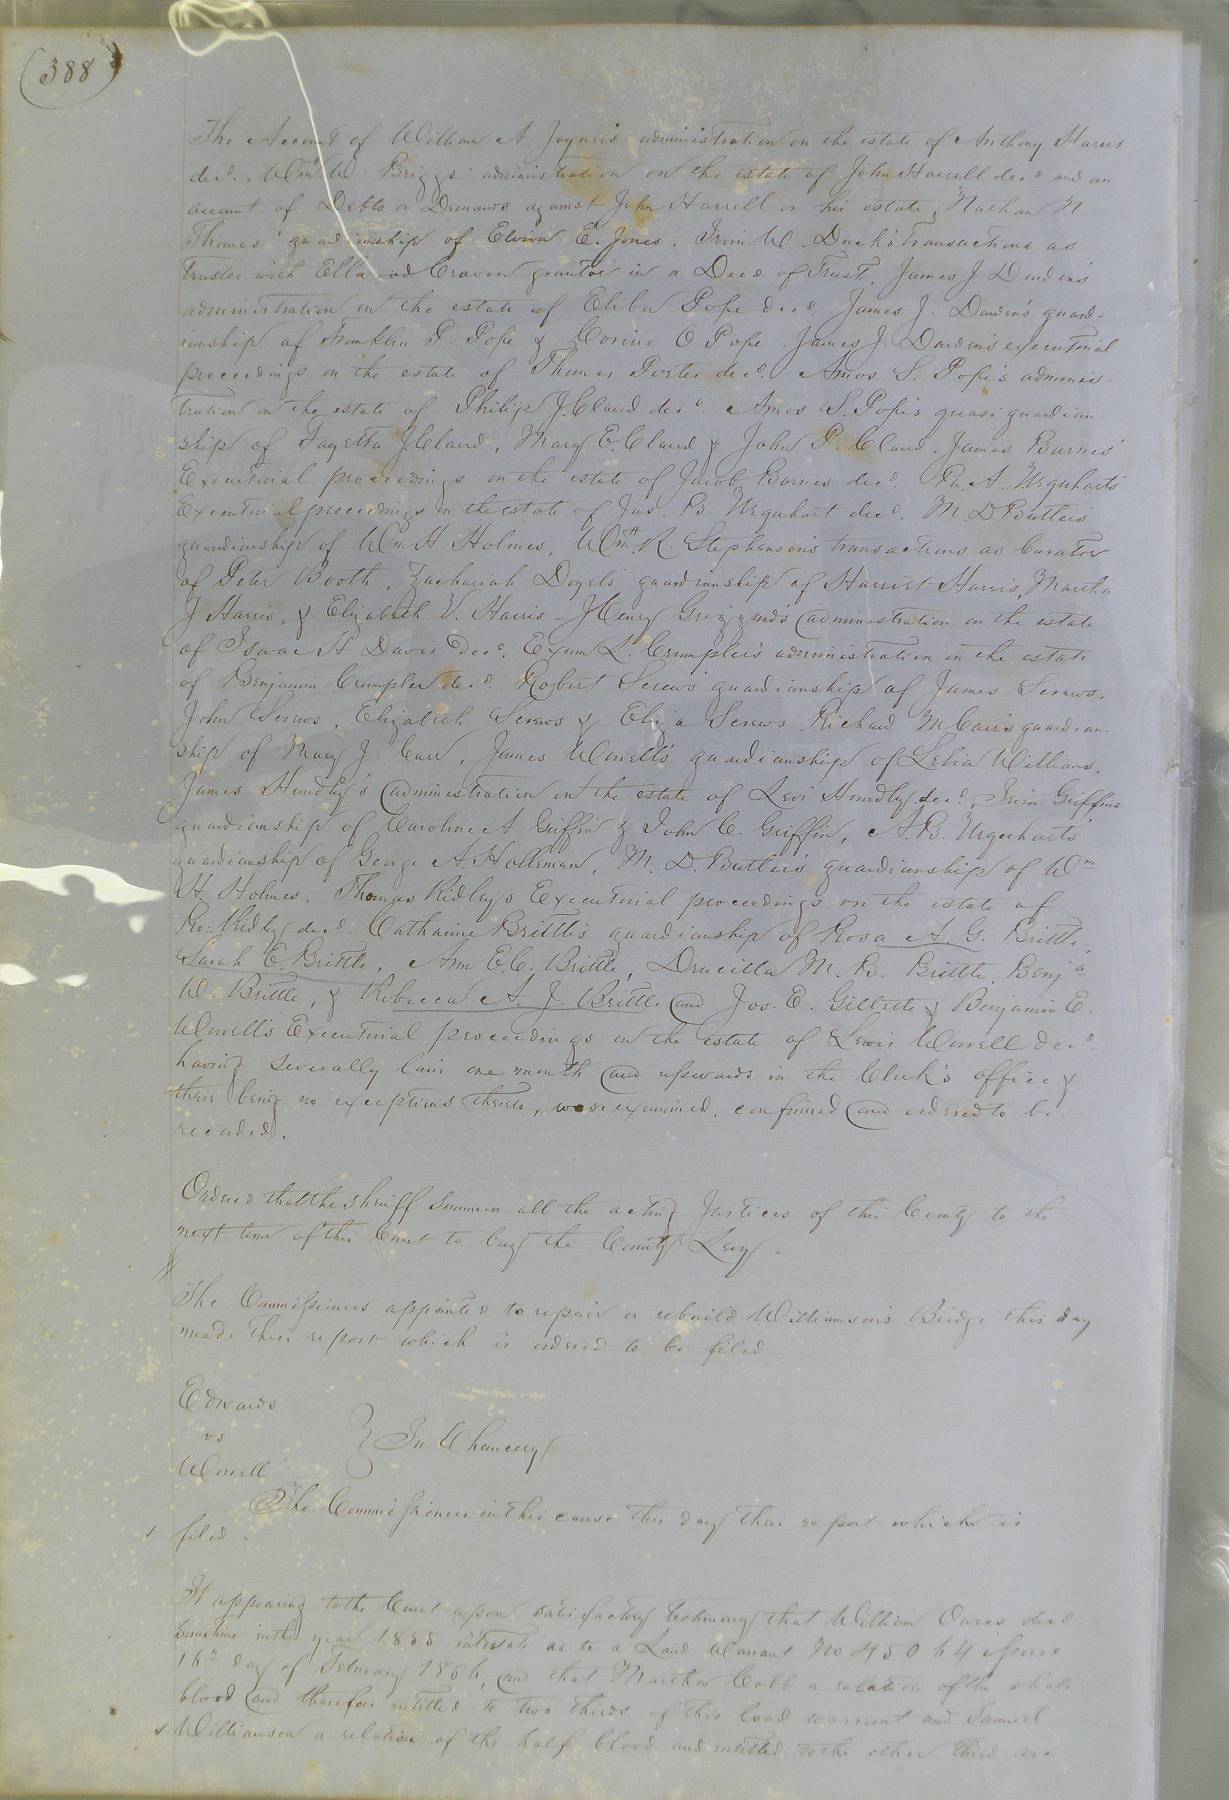 388
The Account of William A Joyner's administration on the estate of Anthony Harris
decd. Wm. W. Briggs' administration on the estate of John Harrell decd and an
account of Debts or Demands against John Harrell or his estate, Nathan N.
Thomas' guardianship of Elvira E. Jones. Irvin W. Duck's transactions as
trustee with Ella and Craven grantor in a Deed of Trust, James J Darden's
administration on the estate of Pope decd James J. Darden's guard-
ianship of Franklin P. Pope & Corine O Pope. James J. Darden's executorial
proceedings on the estate of Thomas Porter decd. Amos S. Pope's adminis-
tration on the estate of Philip J. Claud decd. Amos S. Pope's quasi guardian-
ship of Fayetta J. Claud, Mary E. Claud & John P. Claud. James Barnes'
Executorial proceedings on the estate of Jacob Barnes decd. R. A. Urquhart's
Executorial proceedings on the estate of Jas. B. Urquhart decd. M D Butler's
guardianship of Wm H Holmes, Wm R. Stephenson's transactions as Curator
of Peter Booth, Zachariah Doyel's guardianship of Harriet Harris, Martha
J. Harris, & Elizabeth V. Harris - J Henry Grizzard's administration on the estate
of Isaac H Davis decd. Exum L. Crumpler's administration on the estate
of Benjamin Crumpler decd. Robert Screws' guardianship of James Screws,
John Screws, Elizabeth Screws & Eliza Screws. Richard M Carr's guardian-
ship of Mary J. Carr, James Worrell's guardianship of Lelia Williams,
James Hundly's administration on the estate of Levi Hundly decd. Irvin Griffin's
guardianship of Caroline A Griffin & John C. Griffin, A. B. Urquhart's
guardianship of George A. Holleman, M. D. Butler's guardianship of Wm
H. Holmes. Thomas Ridley's Executorial proceedings on the estate of
Ro: Ridley decd. Catharine Brittle's guardianship of Rosa A. G. Brittle,
Sarah E. Brittle, Ann E. C. Brittle, Drucilla M. B. Brittle, Benja
W. Brittle, & Rebecca A. J. Brittle and Jos. E. Gillette & Benjamin E.
Worrell's Executorial proceedings on the estate of Lewis Worrell decd.
having severally lain one month and upwards in the Clerk's office &
there being no exceptions thereto, were examined, confirmed and ordered to be
recorded.
Ordered that the Sheriff Summon all the acting Justices of this County to the
next term of this Court to lay the County Levy.
The Commissioners appointed to repair or rebuild Williamson's Bridge this day
made their report which is ordered to be filed
Edwards
vs
} In Chancery
Worrell
The Commissioners in this cause this day their report which is
filed.
It appearing to the Court upon satisfactory testimony that William Owens died
in the year 1855 intestate as to a Land Warrant No 45064 issued
16th day of February 1856, and that Martha Cobb a relation of the whole
blood and therefore entitled to two thirds of this land warrant and Samuel
Williamson a relation of the half blood and entitled to the other third are